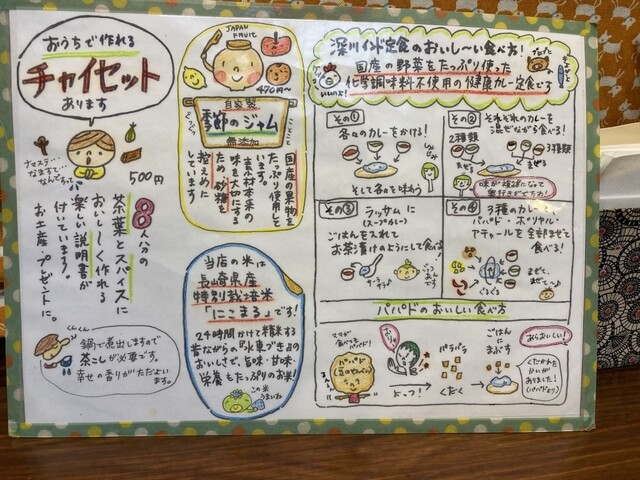 おうちで作れる
チャイセット
あります
ナマステ…
なますて…
なんちって
500円
8人分の
茶葉とスパイスに
おいしーく作れる
楽しい説明書が
付いています。
お土産・プレゼントに。
くんくん
鍋で煮出しますので
茶こしが必要です。
幸せの香りがただよい
ます。
JAPAN
FRUIT
470円〜
自家製
季節のジャム
無添加
国産の果物を
たっぷり使用して
います。
素材本来の
味を大切にする
ため、砂糖を
控えめに
しています
当店の米は
長崎県産
特別栽培米
「にこまる」です!
24時間かけて精米する
昔ながらの『水車づき』の
おいしいで、旨味・甘味・
栄養もたっぷりのお米!
この米
うまいね
深川インド定食のおいし〜い食べ方!
国産の野菜をたっぷり使った
化学調味料不使用の健康カレー定食です
その①
各々のカレーをかける!
そして各々を味わう
その②
それぞれのカレーを
混ぜながら食べる!
2種類
3種類
まぜる
まぜる
味が複雑になって
奥行きがでちゃう!
その③
ラッサムに
(スープカレー)
ごはんを入れて
お茶漬けのようにして食べる!
その④
3種のカレー、
パパド・ポリヤル・
アチャールを全部まぜて
食べる!
まぜて、
まぜて…
パパドのおいしい食べ方
パパド
(豆のせんべい)
よっつ!
パラパラ
くだく
ごはんに
まぶす
おらおいしい!
くだかれた
かいが
ありました!
(パパドより)